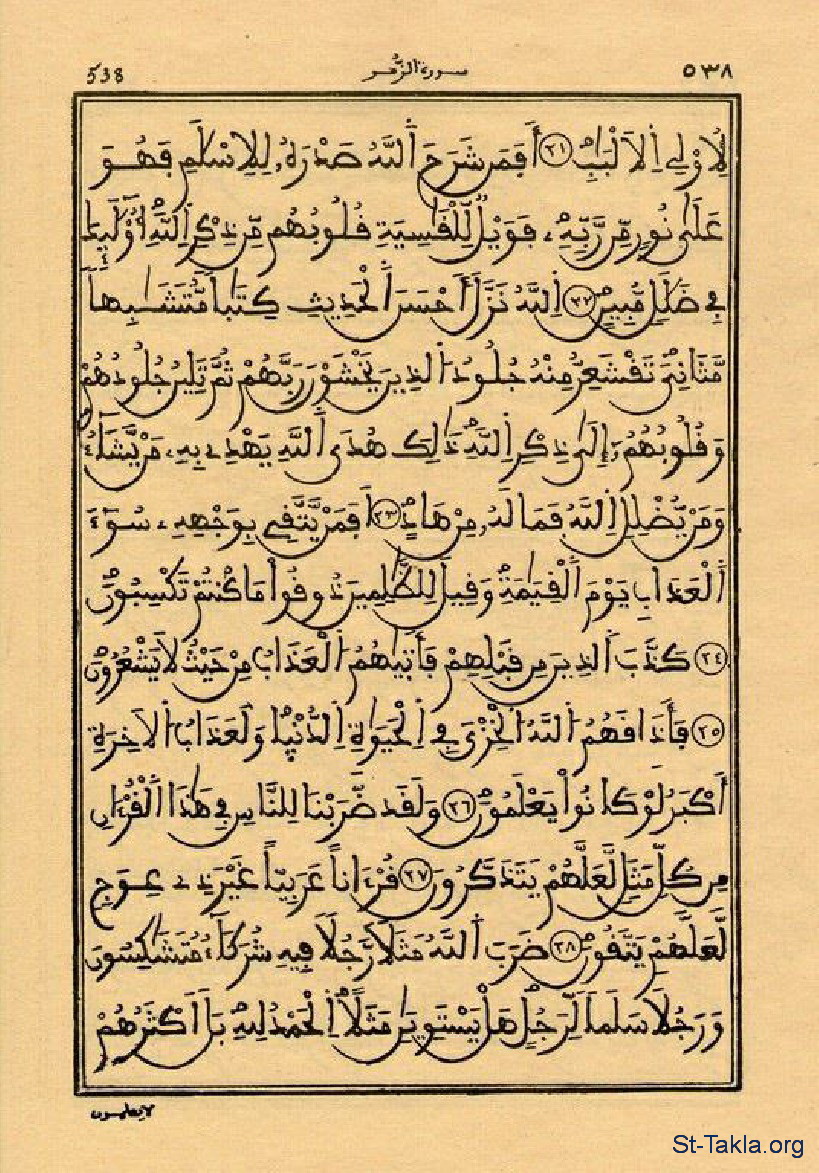 538 سورة الزُّمر ٥٣٨
لِأُوْلِي اِلْأَلْبَٰبِ ٢١ أَفَمَن شَرَحَ اَللَّهُ صَدْرَهُۥ لِلْإِسْلَٰمِ فَهُوَ
عَلَىٰ نُورٍ مِّن رَّبِّهِۦ فَوَيْلٌ لِّلْقَٰسِيَةِ قُلُوبُهُم مِّن ذِكْرِ اِللَّهِ أُوْلَٰٓئِكَ
فِي ضَلَٰلٍ مُّبِينٍ ٢٢ اِللَّهُ نَزَّلَ أَحْسَنَ اَلْحَدِيثِ كِتَٰباً مُّتَشَٰبِهاً
مَّثَانِيَ تَقْشَعِرُّ مِنْهُ جُلُودُ اُلذِينَ يَخْشَوْنَ رَبَّهُمْ ثُمَّ تَلِينُ جُلُودُهُمْ
وَقُلُوبُهُمُۥٓ إِلَىٰ ذِكْرِ اِللَّهِ ذَٰلِكَ هُدَى اَللَّهِ يَهْدِے بِهِۦ مَنْ يَّشَآءُ
وَمَنْ يُّضْلِلِ اِللَّهُ فَمَا لَهُۥ مِنْ هَادٍ ٢٣ أَفَمَنْ يَّتَّقِي بِوَجْهِهِۦ سُوٓءَ
اَلْعَذَابِ يَوْمَ اَلْقِيَٰمَةِ وَقِيلَ لِلظَّٰلِمِينَ ذُوقُواْ مَا كُنتُمْ تَكْسِبُونَ
٢٤ كَذَّبَ اَلذِينَ مِن قَبْلِهِمْ فَأَتَيٰهُمُ اُلْعَذَابُ مِنْ حَيْثُ لَا يَشْعُرُونَ
٢٥ فَأَذَاقَهُمُ اُللَّهُ اُلْخِزْيَ فِي اِلْحَيَوٰةِ اِلدُّنْيَا وَلَعَذَابُ اُلْأَخِرَةِ
أَكْبَرُ لَوْ كَانُواْ يَعْلَمُونَ ٢٦ وَلَقَد ضَّرَبْنَا لِلنَّاسِ فِي هَٰذَا اَلْقُرْءَانِ
مِن كُلِّ مَثَلٍ لَّعَلَّهُمْ يَتَذَكَّرُونَ ٢٧ قُرْءَاناً عَرَبِيّاً غَيْرَ ذِے عِوَجٍ
لَّعَلَّهُمْ يَتَّقُونَ ٢٨ ضَرَبَ اَللَّهُ مَثَلًا رَّجُلًا فِيهِ شُرَكَآءُ مُتَشَٰكِسُونَ
وَرَجُلًا سَلَماً لِّرَجُلٍ هَلْ يَسْتَوِيَٰنِ مَثَلًا اِلْحَمْدُ لِلهِ بَلْ أَكْثَرُهُمْ
لا يعلمون
St-Takla.org